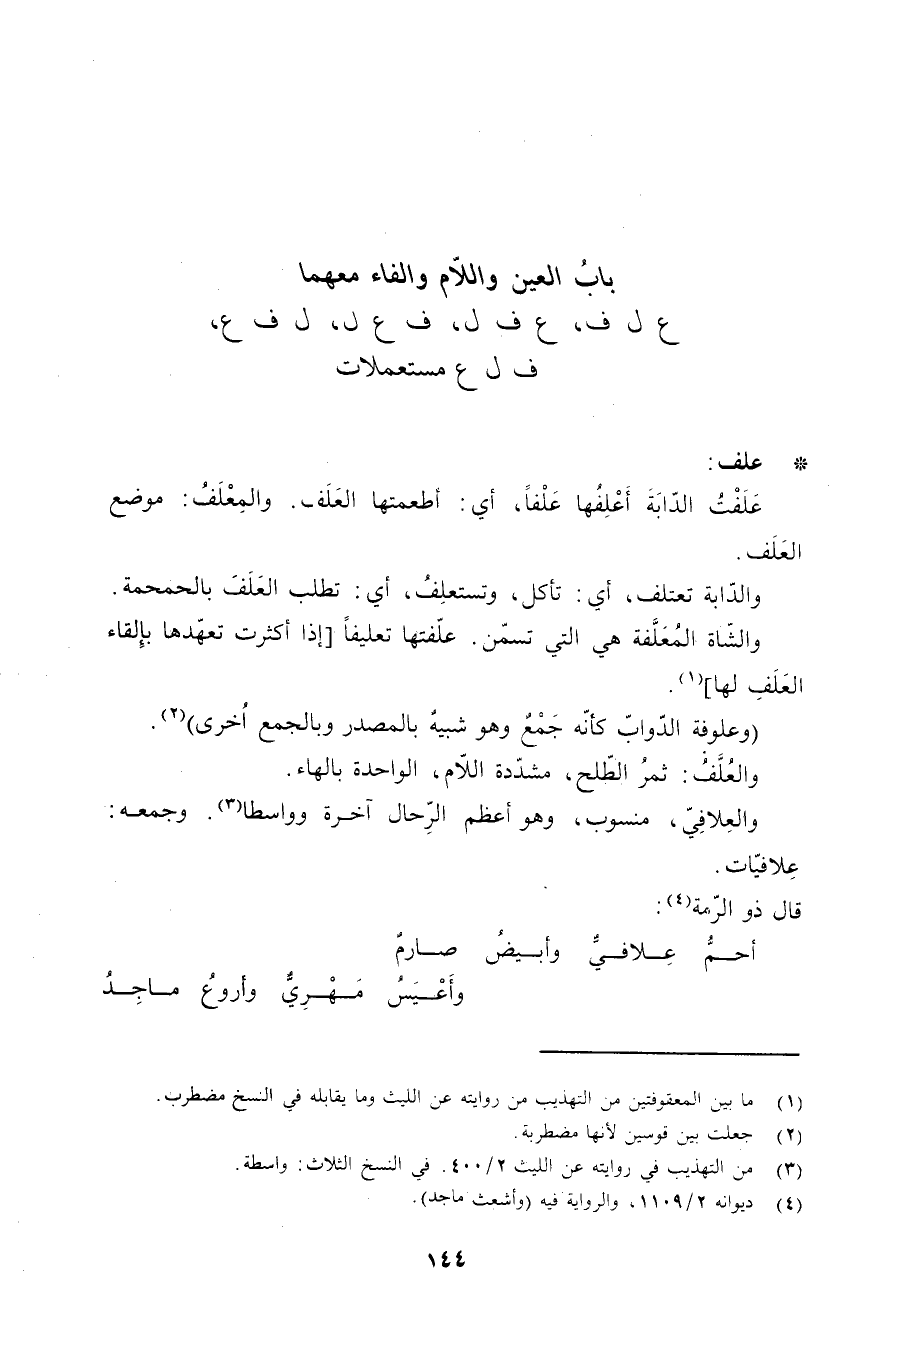 بابُ العين واللاّم والفاء معهما
ع ل ف، ع ف ل، ف ع ل، ل ف ع،
ف ل ع مستعملات
* علف:
عَلَفْتُ الدّابَةَ أَعْلِفُها عَلْفاً، أي: أطعمتها العَلَف. والمِعْلَفُ: موضع
العَلَف.
والدّابة تعتلف، أي: تأكل، وتستعلِفُ، أي: تطلب العَلَفَ بالحمحمة.
والشّاة المُعَلَّفة هي التي تسمّن. علّفتها تعليفاً [إذا أكثرت تعهّدها بإلقاء
العَلَفِ لها](١).
(وعلوفة الدّوابّ كأنّه جَمْعٌ وهو شبيهٌ بالمصدر وبالجمع أُخرى)(٢).
والعُلَّفُ: ثمرُ الطّلح، مشدّدة اللاّم، الواحدة بالهاء.
والعِلافِيّ، منسوب، وهو أعظم الرِّحال آخرة وواسطا(٣). وجمعه:
عِلافيّات.
قال ذو الرّمة(٤):
أحمُّ عِلافيٌّ وأبيضُ صارمٌ
وأَعْيَسُ مَهْرِيٌّ وأروعُ ماجِدُ
(١) ما بين المعقوفتين من التهذيب من روايته عن الليث وما يقابله في النسخ مضطرب.
(٢) جعلت بين قوسين لأنها مضطربة.
(٣) من التهذيب في روايته عن الليث ٤٠٠/٢. في النسخ الثلاث: واسطة.
(٤) ديوانه ١١٠٩/٢، والرواية فيه (وأشعث ماجد).
١٤٤